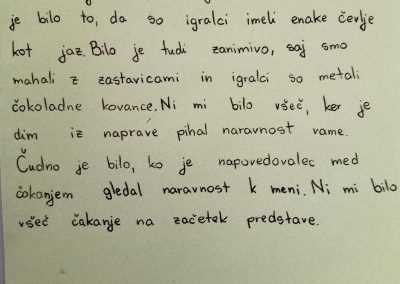 je bilo to, da so igralci imeli enake čevlje
kot jaz. Bilo je tudi zanimivo, saj smo
mahali z zastavicami in igralci so metali
čokoladne kovance. Ni mi bilo všeč, ker je
dim iz naprave pihal naravnost vame.
Čudno je bilo, ko je napovedovalec med
čakanjem gledal naravnost k meni. Ni mi bilo
všeč čakanje na začetek predstave.